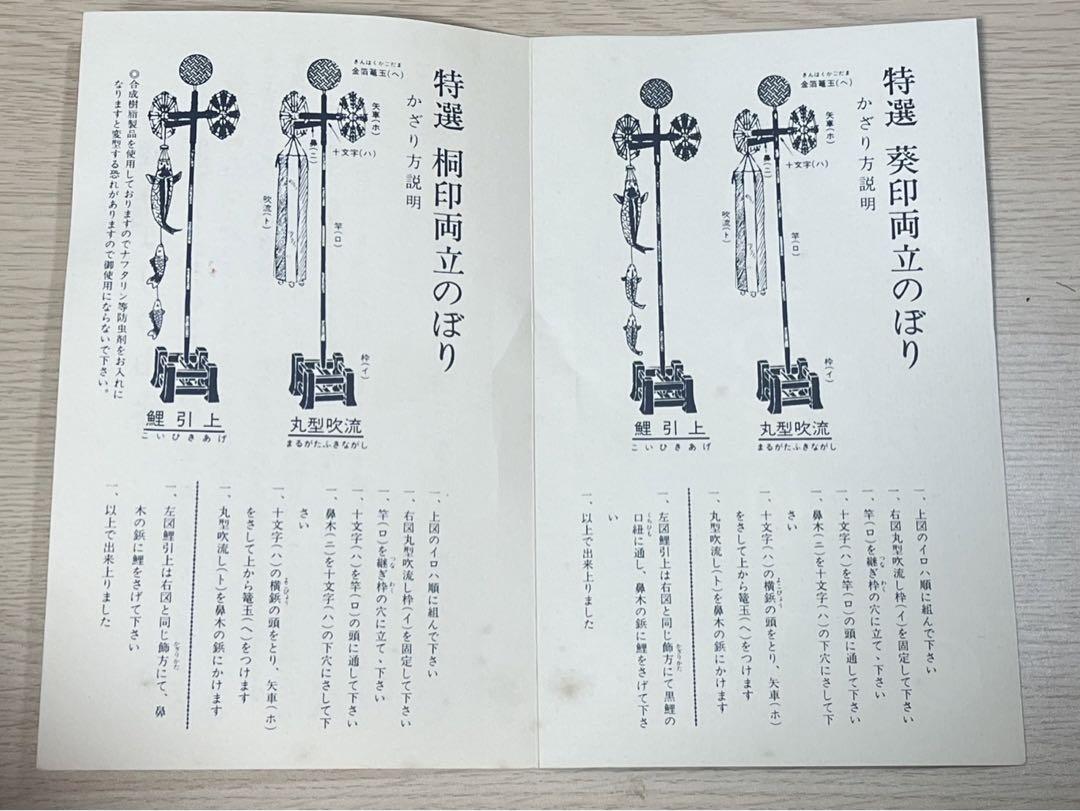 特選 葵印両立のぼり
かざり方説明
きんはくかごだま
金箔篭玉(ヘ)
矢車(ホ)
鼻(ニ)
十文字(ハ)
吹流(ト)
竿(ロ)
枠(イ)
丸型吹流
まるがたふきながし
鯉引上
こいひきあげ
一、上図のイロハ順に組んで下さい
一、右図丸型吹流し枠(イ)を固定して下さい
一、竿(ロ)を継ぎ枠の穴に立て、下さい
つな わく
一、十文字(ハ)を竿(ロ)の頭に通して下さい
一、鼻木(ニ)を十文字(ハ)の下穴にさして下
さい
一、十文字(ハ)の横鋲の頭をとり、矢車(ホ)
よこびょう
をさして上から篭玉(ヘ)をつけます
一、丸型吹流し(ト)を鼻木の鋲にかけます
一、左図鯉引上は右図と同じ飾方にて黒鯉の
かざりかた
口紐に通し、鼻木の鋲に鯉をさげて下さ
くちひも
い
一、以上で出来上りました
特選 桐印両立のぼり
かざり方説明
きんはくかごだま
金箔篭玉(ヘ)
矢車(ホ)
鼻(ニ)
十文字(ハ)
吹流(ト)
竿(ロ)
枠(イ)
丸型吹流
まるがたふきながし
鯉引上
こいひきあげ
◎合成樹脂製品を使用しておりますのでナフタリン等防虫剤をお入れに
なりますと変型する恐れがありますので御使用にならないで下さい。
一、上図のイロハ順に組んで下さい
一、右図丸型吹流し枠(イ)を固定して下さい
一、竿(ロ)を継ぎ枠の穴に立て、下さい
つな わく
一、十文字(ハ)を竿(ロ)の頭に通して下さい
一、鼻木(ニ)を十文字(ハ)の下穴にさして下
さい
一、十文字(ハ)の横鋲の頭をとり、矢車(ホ)
よこびょう
をさして上から篭玉(ヘ)をつけます
一、丸型吹流し(ト)を鼻木の鋲にかけます
一、左図鯉引上は右図と同じ飾方にて、鼻
かざりかた
木の鋲に鯉をさげて下さい
一、以上で出来上りました